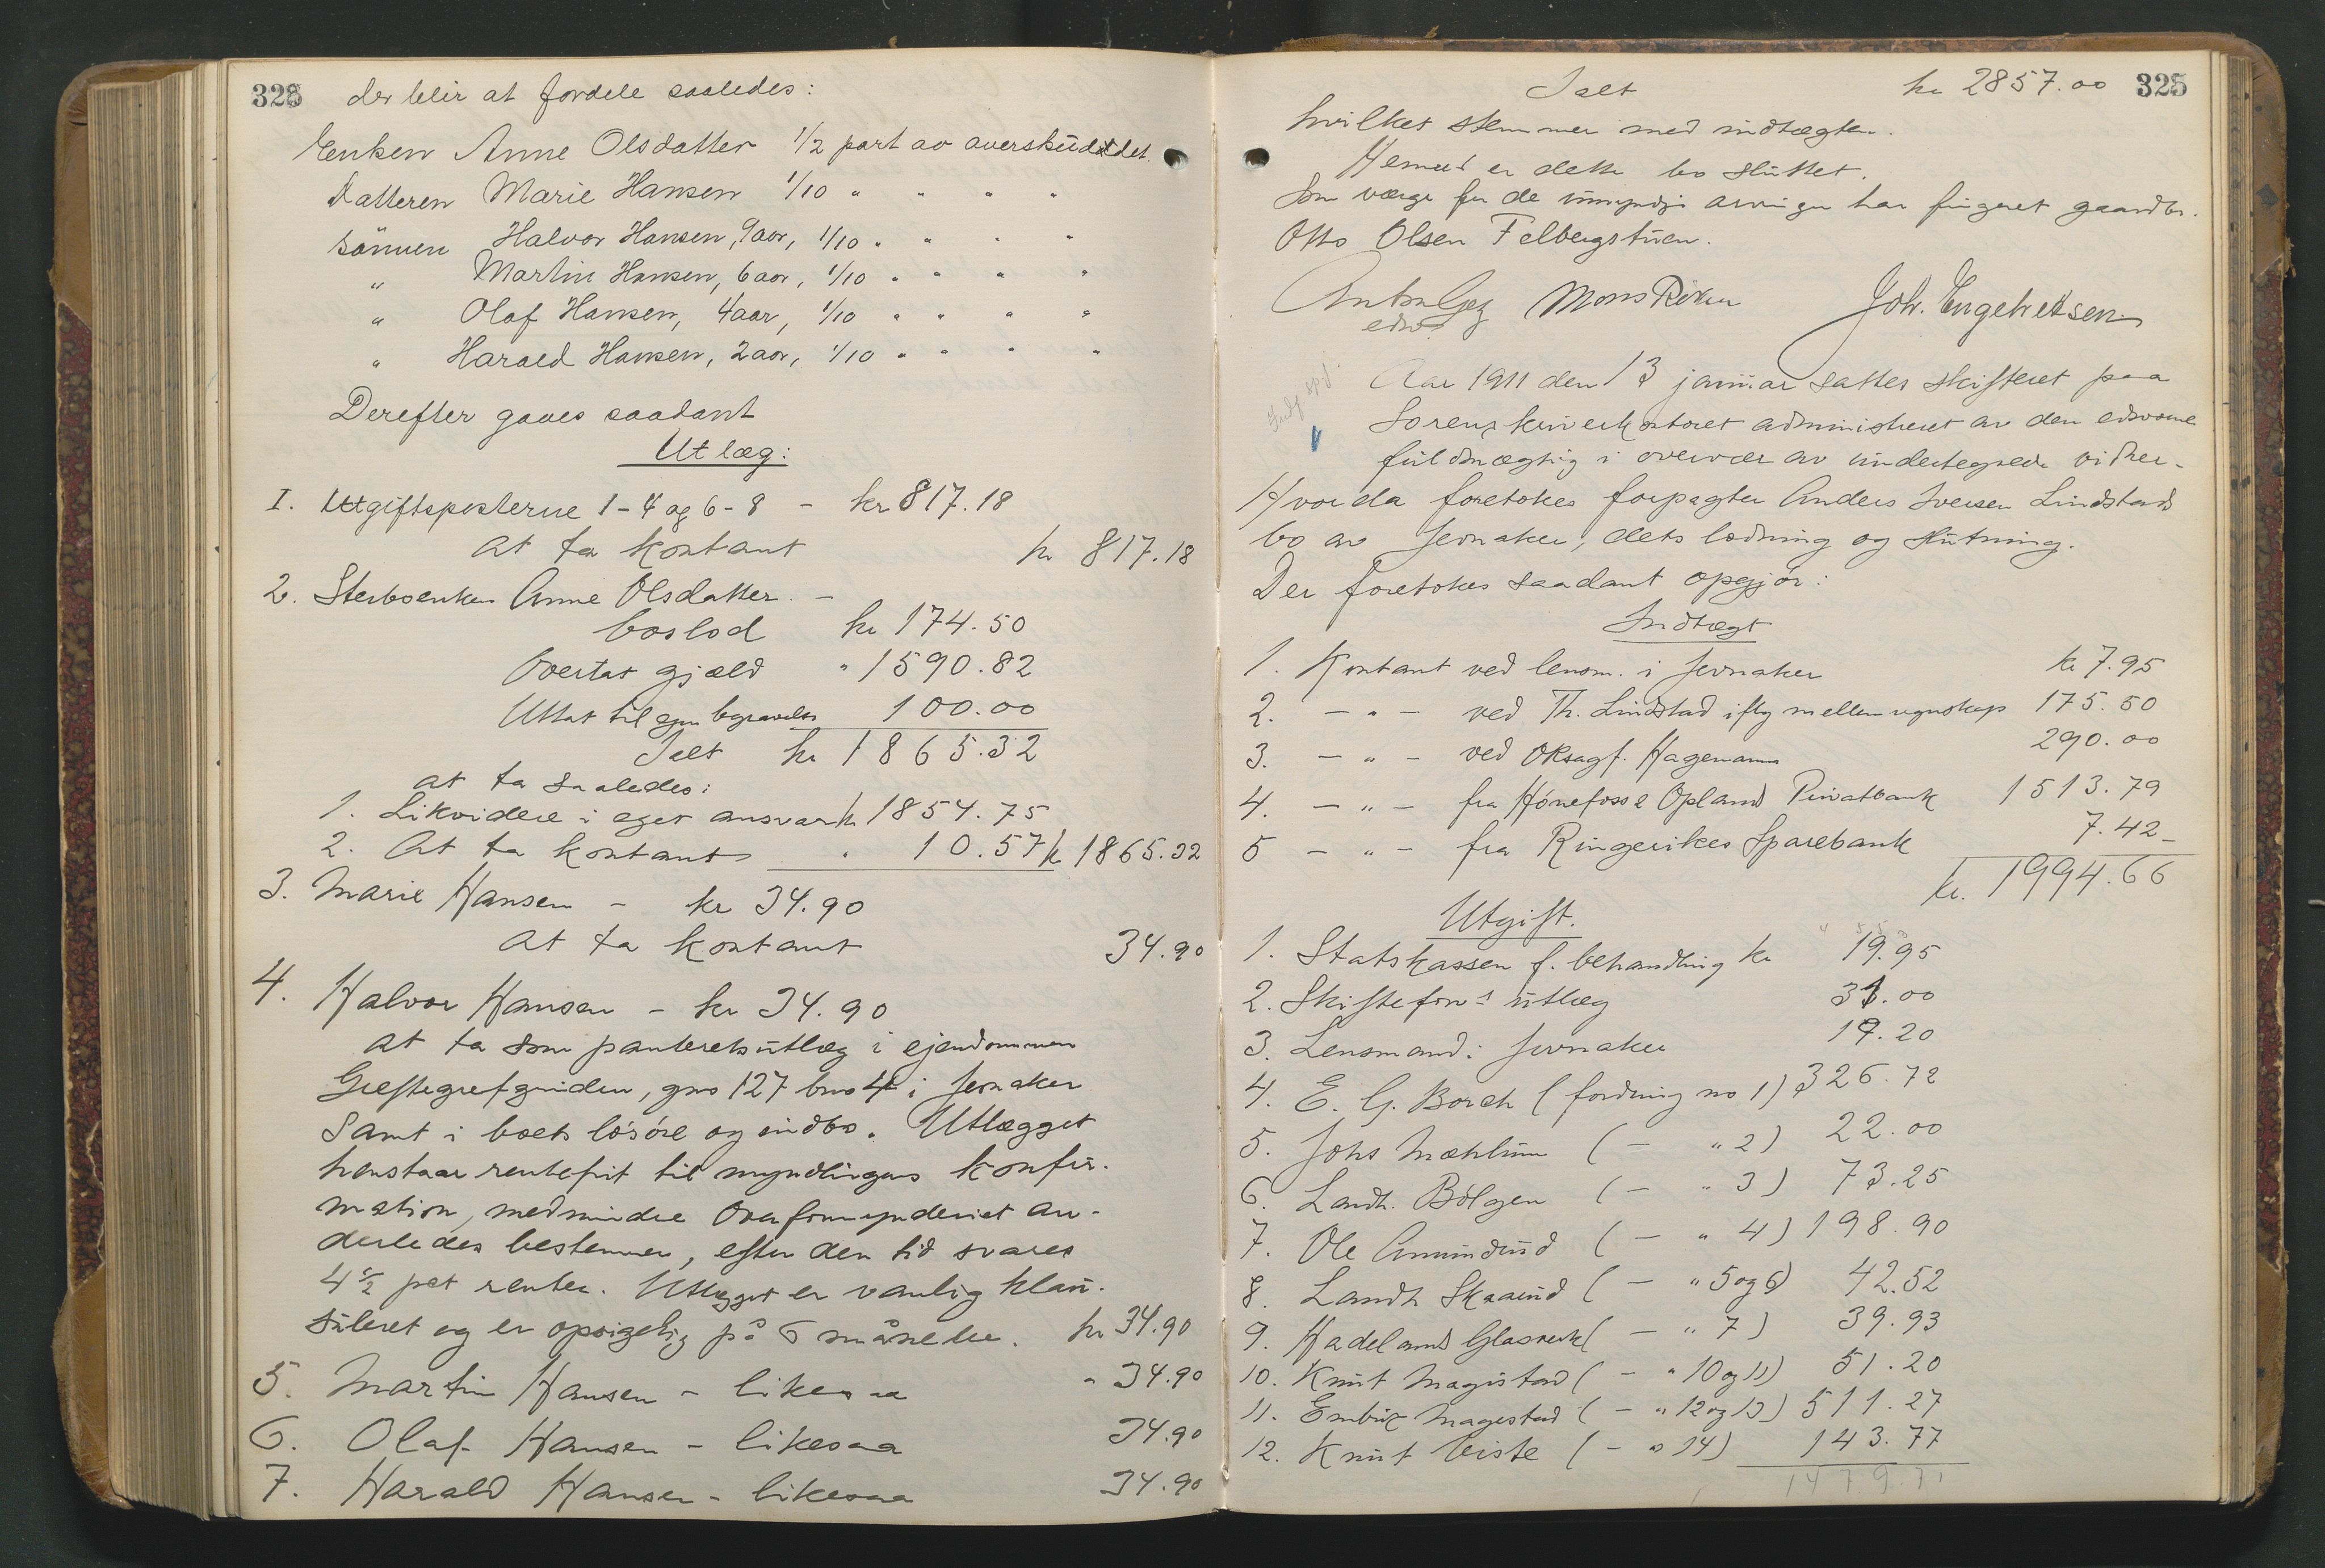 328 der blir at fordele saaledes:
Enken Anne Olsdatter 1/2 part av averskuddet.
Datteren Marie Hansen 1/10 " " " "
Sönnen Halvor Hansen, 9 aar, 1/10 " " " "
" Martin Hansen, 6 aar, 1/10 " " " "
" Olaf Hansen, 4 aar, 1/10 " " " "
" Harald Hansen, 2 aar, 1/10 " " " "
Derefter gaves saadant
Utlæg:
I. Utgiftsposterne 1-4 og 6-8 - kr 817.18
at ta kontant kr 817.18
2. Sterboenken Anne Olsdatter. -
boslod kr 174.50
Overtat gjæld " 1590.82
Uttat til egen begravelse 100.00
Ialt kr 1865.32
at ta saaledes:
1. Likvidere i eget ansvar kr 1854.75
2. At ta kontant " 10.57 kr 1865.32
3. Marie Hansen - kr 34.90
at ta kontant 34.90
4. Halvor Hansen - kr 34.90
at ta som panteretsutlæg i ejendommen
gno 127 bno 4 i Jevnaker
samt i boets lösöre og indbo. Utlægget
henstaar rentefrit til myndlingens konfir-
mation, medmindre Overformynderiet an-
derledes bestemmer, efter den tid svares
4 1/2 pct renter. Utlægget er vanlig klau-
suleret og er opsigelig på 6 måneder. kr 34.90
5. Martin Hansen - likesaa " 34.90
6. Olaf Hansen - likesaa 34.90
7. Harald Hansen - likesaa 34.90
Ialt kr 2857.00 325
hvilket stemmer med indtægten.
Hermed er dette bo sluttet.
Som værge for de umyndige arvinger har fungeret gaardbr.
Otto Olsen Felbergstuen.
Mons Röken Joh. Engebretsen
edsv.
Aar 1911 den 13 januar sattes skifteret paa
Sorenskriverkontoret administreret av den edsvorne
fuldmægtig i overvær av undertegnede vidner.
Hvor da foretokes forpagter Anders Iversen Lindstads
bo av Jevnaker, dets lodning og slutning.
Der foretokes saadant opgjör:
Indtægt
1. Kontant ved lensm. i Jevnaker kr 7.95
2. - " - ved Th. Lindstad ifølg mellemregnskap 175.50
3. - " - ved OKsagf. Hagemann 290.00
4. - " - fra Hönefoss & Opland Privatbank 1513.79
5 - " - fra Ringerikes Sparebank 7.42
kr. 1994.66
Utgift.
1. Statskassen f. behandling kr 19.95
2. Skifteforv.s utlæg 31.00
3. Lensmand i Jevnaker 17.20
4. E. G. Borch (fordring no 1) 326.72
5. Johs Mæhlum ( - " 2) 22.00
6. Landh. Bölgen ( - " 3) 73.25
7. Ole Amundrud ( - " 4) 198.90
8. Landh Skaarud ( - " 5 og 6) 42.52
9. Hadelands Glasverk ( - " 7) 39.93
10. Knut Magistad ( - " 10 og 11) 51.20
11. Embrik Magestad ( - " 12 og 13) 511.27
12. Knut Veiste ( - " 14) 143.77
1479.71